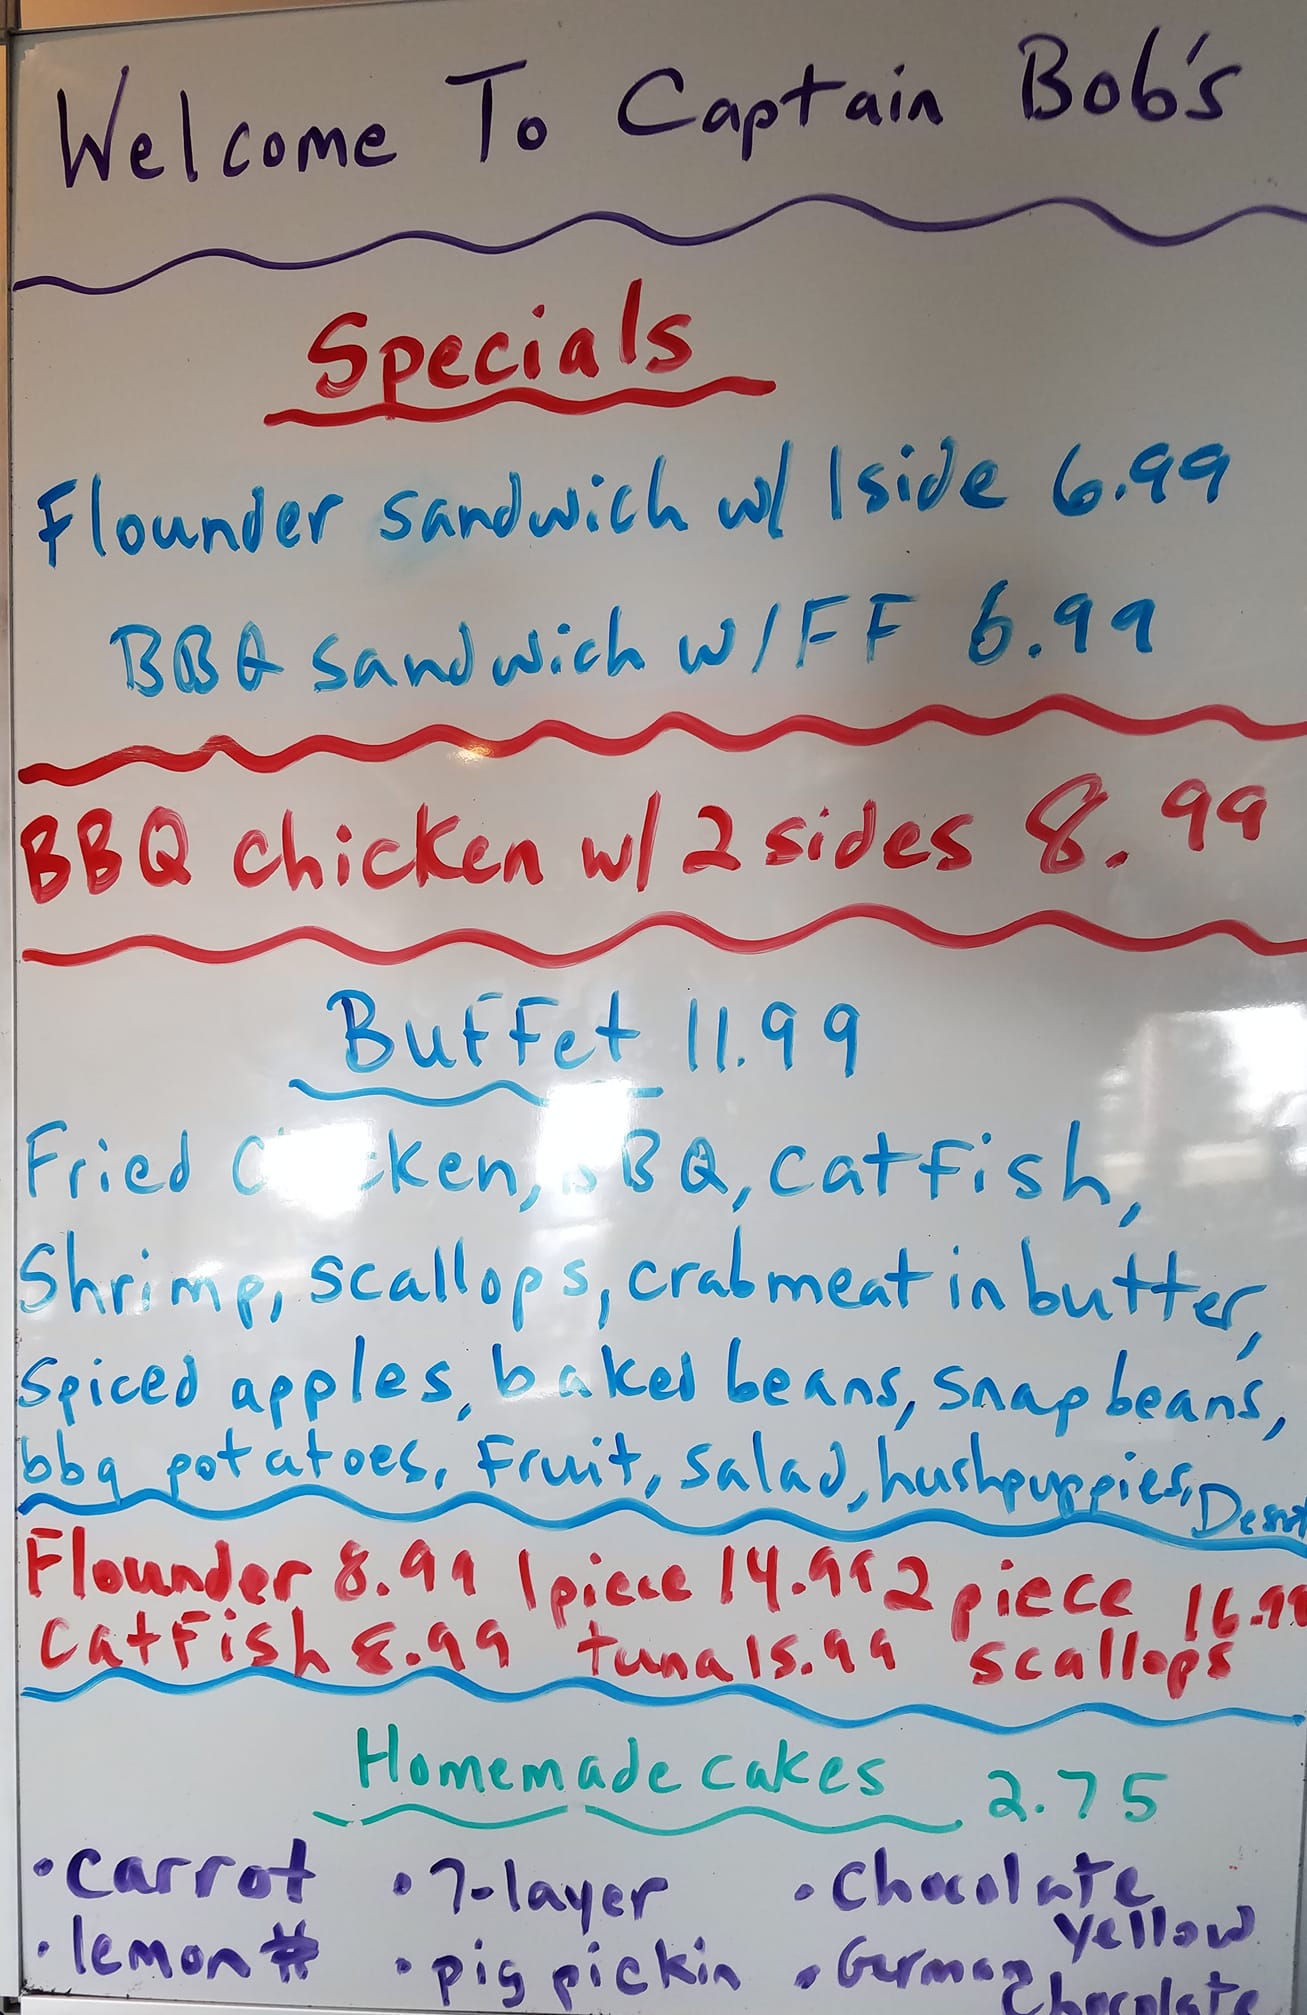 Welcome To Captain Bob's
Specials
Flounder sandwich w/ 1 side 6.99
BBQ sandwich w/ FF 6.99
BBQ chicken w/ 2 sides 8.99
Buffet 11.99
Fried Chicken, BBQ, catfish,
Shrimp, scallops, crabmeat in butter,
Spiced apples, baked beans, snap beans,
bbq potatoes, Fruit, salad, hushpuppies,
Flounder 8.99 1 piece 14.99 2 piece 16.99
catfish 8.99 tuna 15.99 scallops
Homemade cakes 2.75
• carrot • 7-layer • Chocolate
yellow
• lemon • pig pickin • German
Chocolate